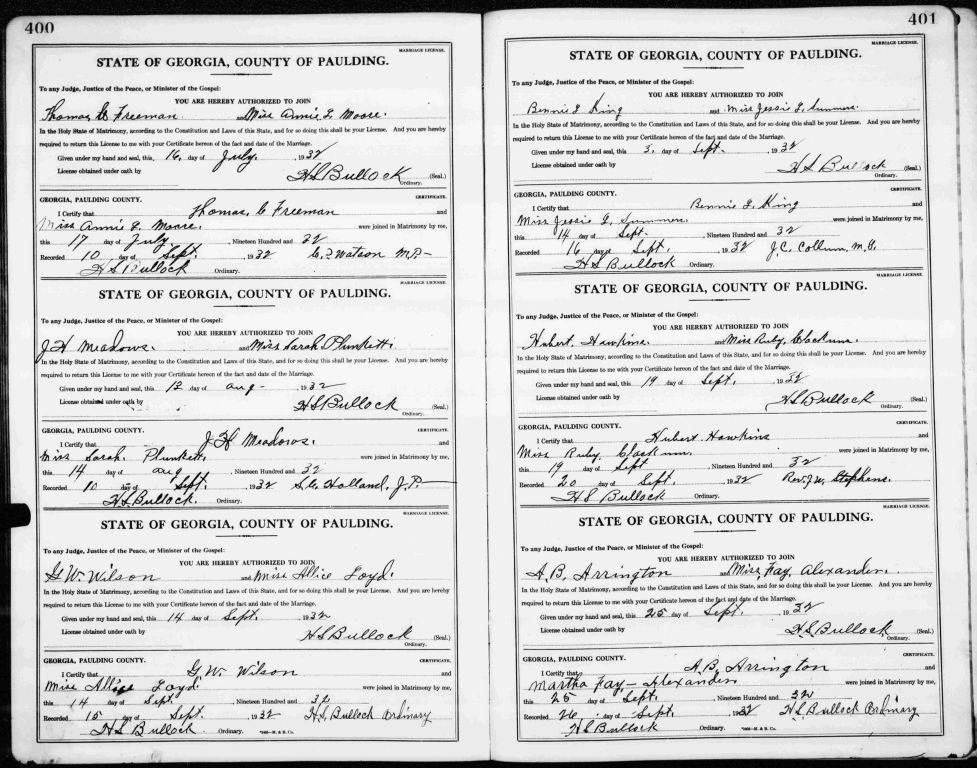 400
MARRIAGE LICENSE.
STATE OF GEORGIA, COUNTY OF PAULDING.
To any Judge, Justice of the Peace, or Minister of the Gospel:
YOU ARE HEREBY AUTHORIZED TO JOIN
Thomas C Freeman and Miss Annie L. Moore.
In the Holy State of Matrimony, according to the Constitution and Laws of this State, and for so doing this shall be your License. And you are hereby
required to return this License to me with your Certificate hereon of the fact and date of the Marriage.
Given under my hand and seal, this 16 day of July. , 1932
License obtained under oath by H S Bullock (Seal.)
Ordinary.
GEORGIA, PAULDING COUNTY. CERTIFICATE.
I Certify that Thomas C Freeman and
Miss Annie L. Moore. were joined in Matrimony by me,
this 17 day of July , Nineteen Hundred and 32
Recorded 10 day of Sept. , 1932 Watson
H S Bullock Ordinary.
MARRIAGE LICENSE.
STATE OF GEORGIA, COUNTY OF PAULDING.
To any Judge, Justice of the Peace, or Minister of the Gospel:
YOU ARE HEREBY AUTHORIZED TO JOIN
J H Meadows. and Miss Sarah Plunkett.
In the Holy State of Matrimony, according to the Constitution and Laws of this State, and for so doing this shall be your License. And you are hereby
required to return this License to me with your Certificate hereon of the fact and date of the Marriage.
Given under my hand and seal, this 12 day of Aug - , 1932
License obtained under oath by H S Bullock (Seal.)
Ordinary.
GEORGIA, PAULDING COUNTY. CERTIFICATE.
I Certify that J H Meadows. and
Miss Sarah Plunkett. were joined in Matrimony by me,
this 14 day of Aug , Nineteen Hundred and 32
Recorded 10 day of Sept. , 1932 Holland, J.P.
H S Bullock. Ordinary.
MARRIAGE LICENSE.
STATE OF GEORGIA, COUNTY OF PAULDING.
To any Judge, Justice of the Peace, or Minister of the Gospel:
YOU ARE HEREBY AUTHORIZED TO JOIN
G W. Wilson and Miss Allie Loyd.
In the Holy State of Matrimony, according to the Constitution and Laws of this State, and for so doing this shall be your License. And you are hereby
required to return this License to me with your Certificate hereon of the fact and date of the Marriage.
Given under my hand and seal, this 14 day of Sept. , 1932
License obtained under oath by H S Bullock (Seal.)
Ordinary.
GEORGIA, PAULDING COUNTY. CERTIFICATE.
I Certify that G W. Wilson and
Miss Allie Loyd. were joined in Matrimony by me,
this 14 day of Sept. , Nineteen Hundred and 32
Recorded 15 day of Sept. , 1932 H.S. Bullock Ordinary
H S Bullock Ordinary.
401
MARRIAGE LICENSE.
STATE OF GEORGIA, COUNTY OF PAULDING.
To any Judge, Justice of the Peace, or Minister of the Gospel:
YOU ARE HEREBY AUTHORIZED TO JOIN
Bennie King and Miss Jessie Summers.
In the Holy State of Matrimony, according to the Constitution and Laws of this State, and for so doing this shall be your License. And you are hereby
required to return this License to me with your Certificate hereon of the fact and date of the Marriage.
Given under my hand and seal, this 3. day of Sept. , 1932
License obtained under oath by H S Bullock (Seal.)
Ordinary.
GEORGIA, PAULDING COUNTY. CERTIFICATE.
I Certify that Bennie King and
Miss Jessie Summers. were joined in Matrimony by me,
this 14 day of Sept. , Nineteen Hundred and 32
Recorded 16 day of Sept. , 1932 J.C. Collum, M.G.
H S Bullock Ordinary.
MARRIAGE LICENSE.
STATE OF GEORGIA, COUNTY OF PAULDING.
To any Judge, Justice of the Peace, or Minister of the Gospel:
YOU ARE HEREBY AUTHORIZED TO JOIN
Hubert. Hawkins. and Miss Ruby. Clackum.
In the Holy State of Matrimony, according to the Constitution and Laws of this State, and for so doing this shall be your License. And you are hereby
required to return this License to me with your Certificate hereon of the fact and date of the Marriage.
Given under my hand and seal, this 19 day of Sept. , 1932
License obtained under oath by H S Bullock (Seal.)
Ordinary.
GEORGIA, PAULDING COUNTY. CERTIFICATE.
I Certify that Hubert Hawkins and
Miss Ruby. Clackum. were joined in Matrimony by me,
this 19 day of Sept , Nineteen Hundred and 32
Recorded 20 day of Sept. , 1932 Rev. J.W. Stephens.
H S Bullock Ordinary.
MARRIAGE LICENSE.
STATE OF GEORGIA, COUNTY OF PAULDING.
To any Judge, Justice of the Peace, or Minister of the Gospel:
YOU ARE HEREBY AUTHORIZED TO JOIN
A.B. Arrington and Miss Fay. Alexander.
In the Holy State of Matrimony, according to the Constitution and Laws of this State, and for so doing this shall be your License. And you are hereby
required to return this License to me with your Certificate hereon of the fact and date of the Marriage.
Given under my hand and seal, this 25 day of Sept. , 1932
License obtained under oath by H.S. Bullock (Seal.)
Ordinary.
GEORGIA, PAULDING COUNTY. CERTIFICATE.
I Certify that A.B. Arrington and
Martha Fay - Alexander were joined in Matrimony by me,
this 25 day of Sept. , Nineteen Hundred and 32
Recorded 26. day of Sept. , 1932 H S Bullock Ordinary
H S Bullock Ordinary.